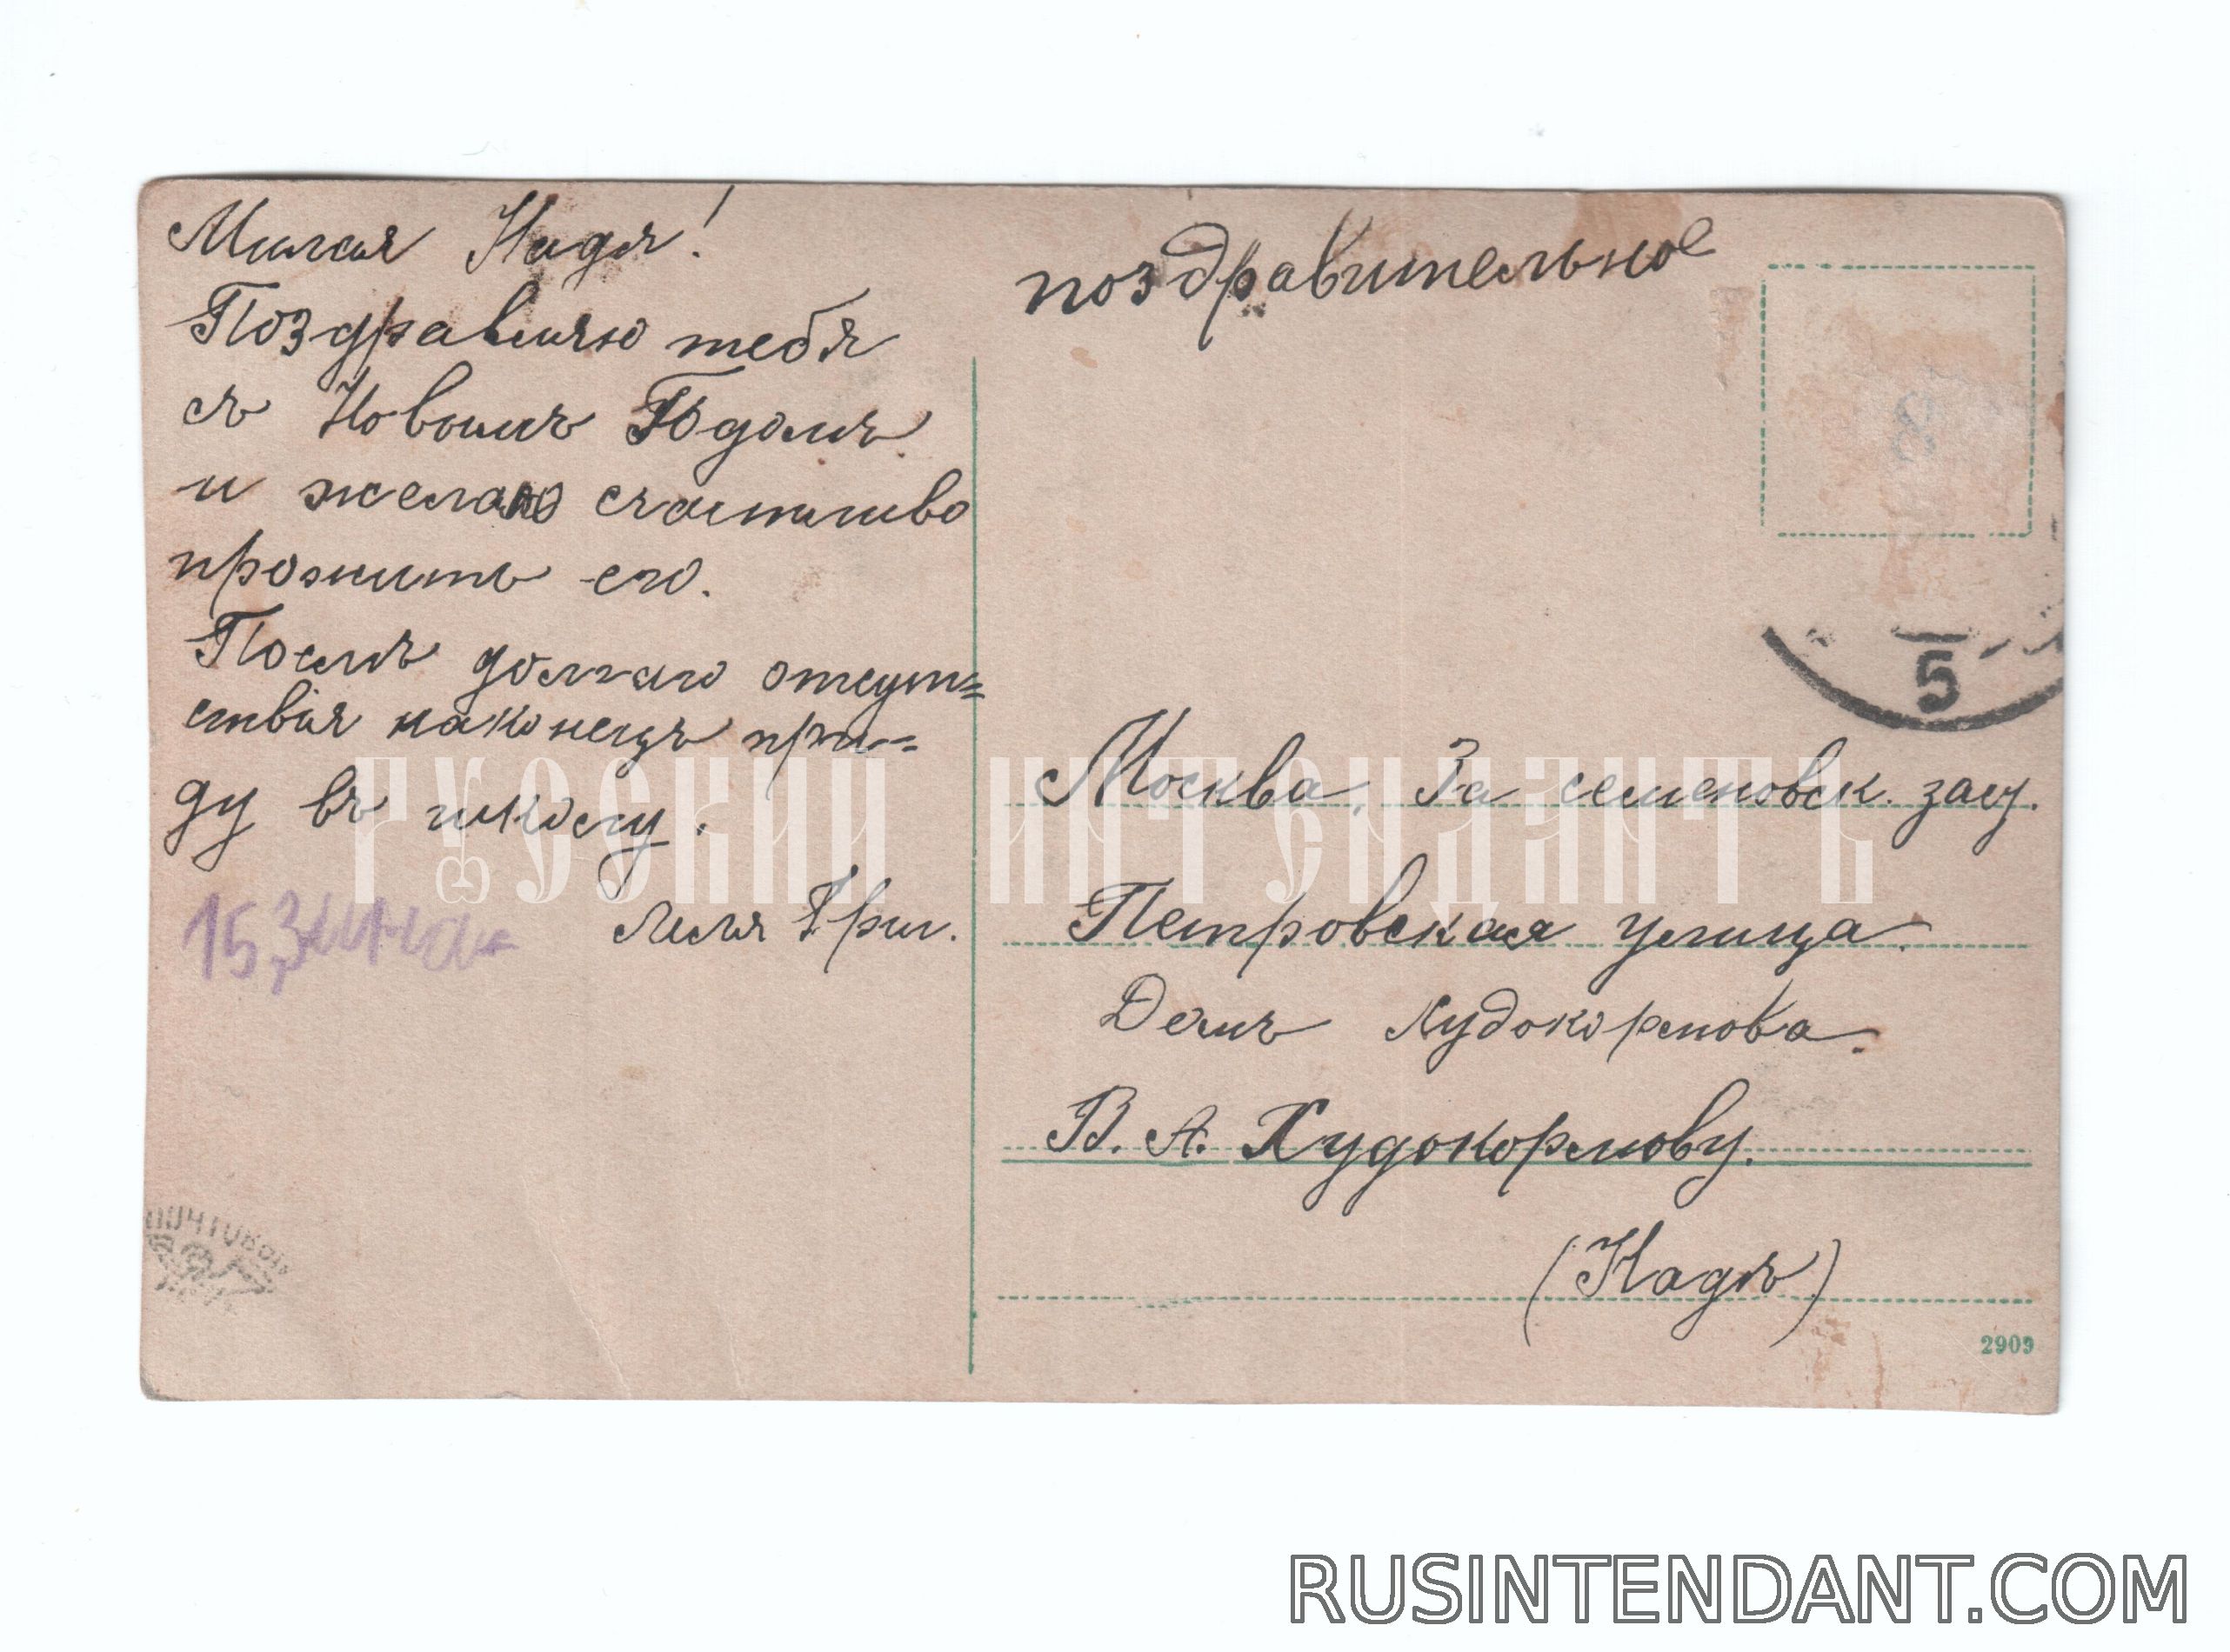 Милая Надя!
Поздравляю тебя
съ Новымъ Годомъ
и желаю счастливо
прожить его.
Послѣ долгаго отсут=
ствія наконецъ при=
ду въ школу.
Леля
15 зима
поздравительное
8
5
Москва. За семеновск. заст.
Петровская улица.
Домъ Худокормова.
В. А. Худокормову.
(Надѣ)
2909
РУССКИЙ ИНТЕНДАНТЪ
RUSINTENDANT.COM